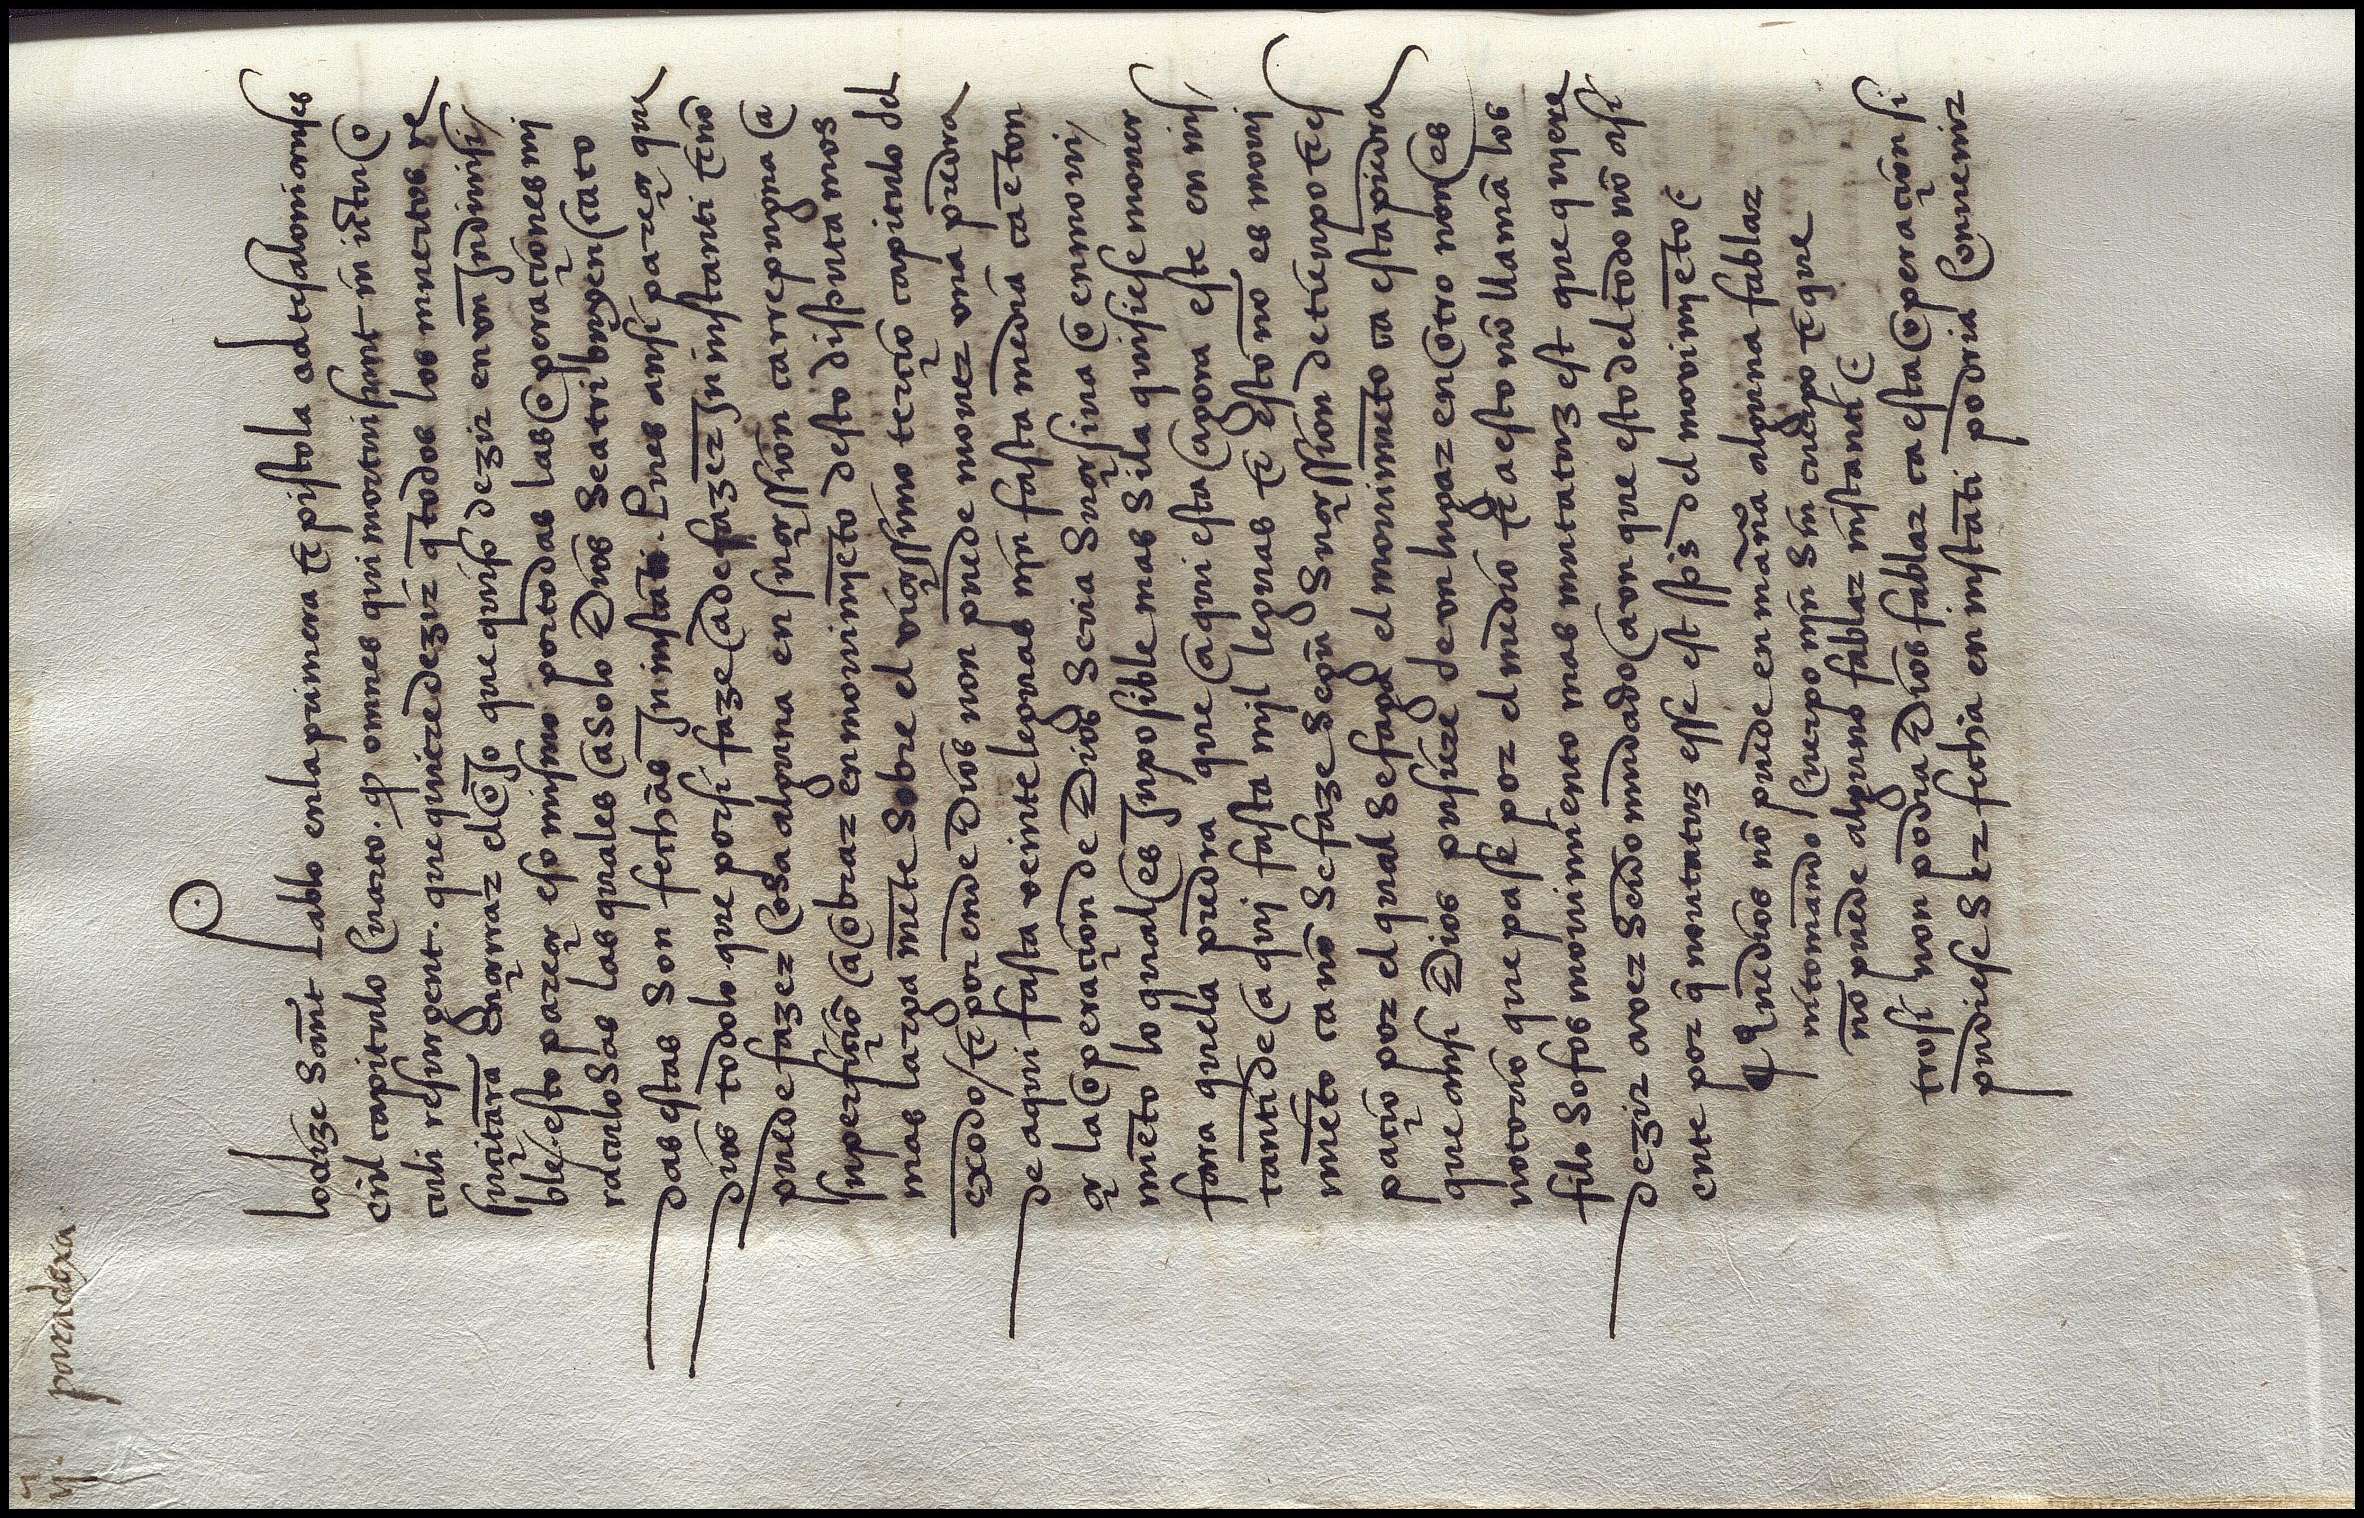 ij. paradoxa
lo dize sant Pablo en la primera epistola ad tesalonicenses
en el capitulo quarto. qr omnes qui mortui sunt in ictu o
culi resurgent. que quiere dezir q̄ todos los muertos re
suçitarā en çerrar el ojo que quiso dezir en vn Indiuisi
ble. esto pareçe eso mismo por todas las operaçiones mi
raculosas las quales a solo dios se atribuyen
das estas son fechas In instāti. Pues ansi pareçe que
dios todo lo que por si faze a de fazer In instanti e nō
puede fazer cosa alguna en suçession ca repugna a
su perfeçiō a obrar en mouimjēto desto disputamos
mas larga mēte sobre el viçessimo terçio capitulo del
exodo / e por ende dios non puede mouer vna piedra
de aqui fasta veinte leguas njn fasta media ca enton
çe la operaçion de dios seria suçesiua o en moui
miēto lo qual es Inposible mas si la quisiese mouer
fara quella piedra que aqui esta agora este en ins
tanti de aqui fasta mjl leguas e esto no es moui
miēto ca nō se faze segun suçession de tienpo e es
paçio por el qual se faga el mouimiēto ca esta piedra
que ansi dios pusiere de vn lugar en otro non es
notorio que pase por el medio e a esto nō llamā los
filosofos mouimiento mas mutatur est que quiere
dezir aver seido mudado avn que esto del todo nō asi
ente por q̄ mutatur esse est sp̄s del movimjēto.
¶ Que dios nō puede en maña alguna fablar
nin tomando cuerpo njn sin cuerpo e que
nō puede alguno fablar instanti
trosi non podria dios fablar ca esta operaçion si
pudiese ser fecha en instāti podria conuenir